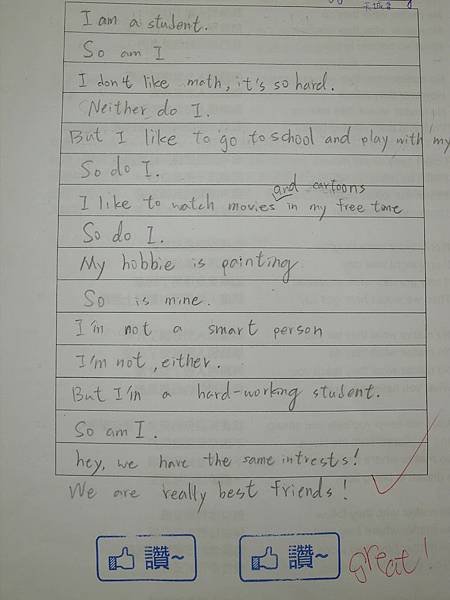 I am a student.
So am I
I don't like math, it's so hard.
Neither do I.
But I like to go to school and play with my
So do I.
and cartoons
I like to watch movies in my free time
So do I.
My hobbie is painting
So is mine.
I'm not a smart person
I'm not, either.
But I'm a hard-working student.
So am I.
hey, we have the same intrests!
We are really best friends!
讚~ 讚~ great!